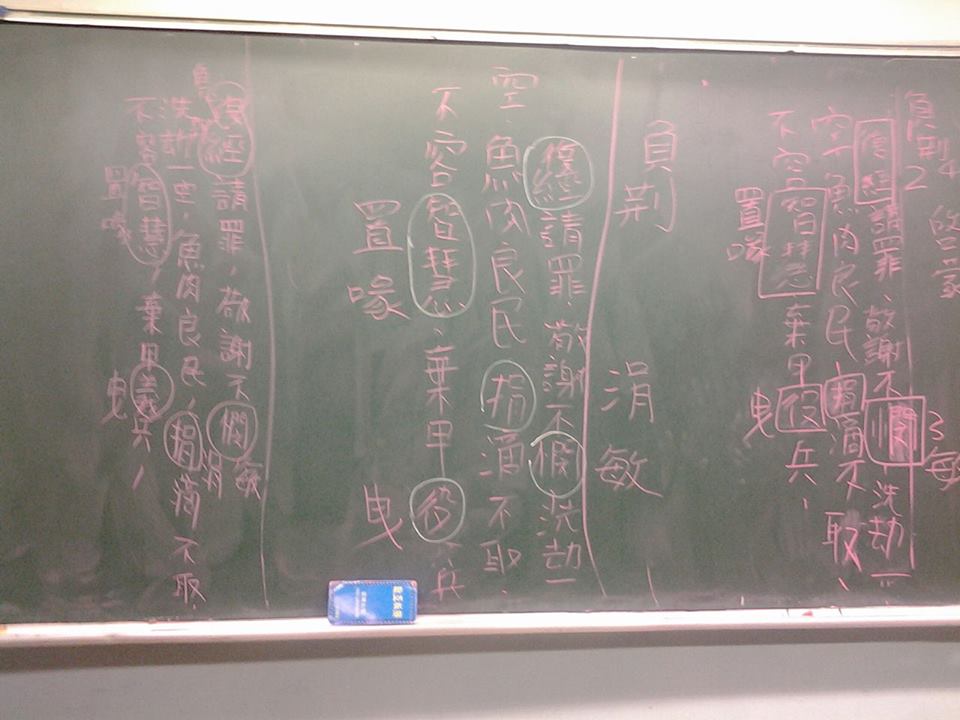 負荊 4 2 3 敏
請罪、敬謝不憫洗劫一
空魚肉良民捐滴不取、
不容智慧棄甲役兵、
置喙 曳
負荊 涓 敏
請罪、敬謝不憫洗劫一
空、魚肉良民捐滴不取.
不容智慧、棄甲役兵
置喙 曳
經請罪,敬謝不憫 敏
洗劫一空,魚肉良民,捐滴不取. 涓
不容智慧,棄甲義兵,
置喙 曳